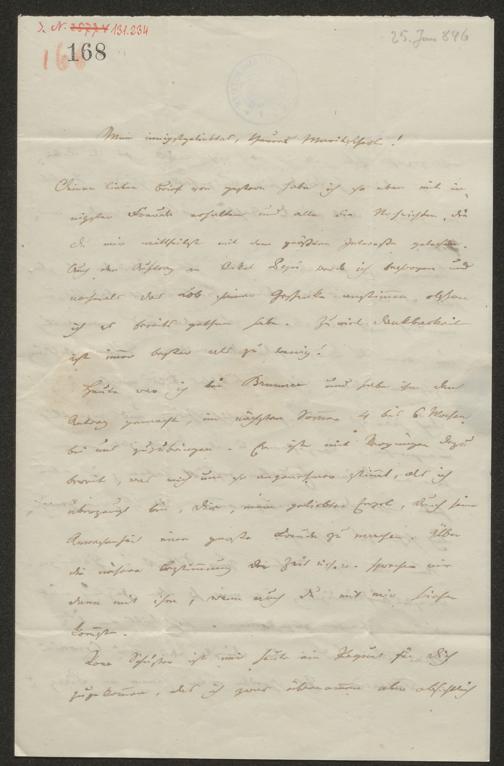 J. N. 25774 131.234
168
25. Jan 846
Mein innigstgeliebtes, theures Mariescherl!
Deinen lieben Brief von gestern habe ich so eben mit in-
nigster Freude erhalten und alle die Nachrichten, die
du mir mittheilst mit dem größten Interesse gelesen.
Auch den Auftrag an Onkel werde ich besorgen und
nochmals das Lob seiner Geschenke anstimmen, obschon
ich es bereits gethan habe. Zu viel Dankbarkeit
ist immer besser als zu wenig!
Heute war ich bei und habe ihm den
Antrag gemacht, im nächsten Sommer 4 bis 6 Wochen
bei uns zuzubringen. Er ist mit Vergnügen dazu
bereit, was mich um so angenehmer stimmt, als ich
überzeugt bin, Dir, mein geliebter Engel, durch seine
Anwesenheit eine große Freude zu machen. Über
die nähere Bestimmung der Zeit sprechen wir
dann mit ihm, wenn auch du mit mir hieher
kommst.
Schuster ist mir heute ein Paquet für Dich
zugekommen, das ich zwar übernommen aber absichtlich